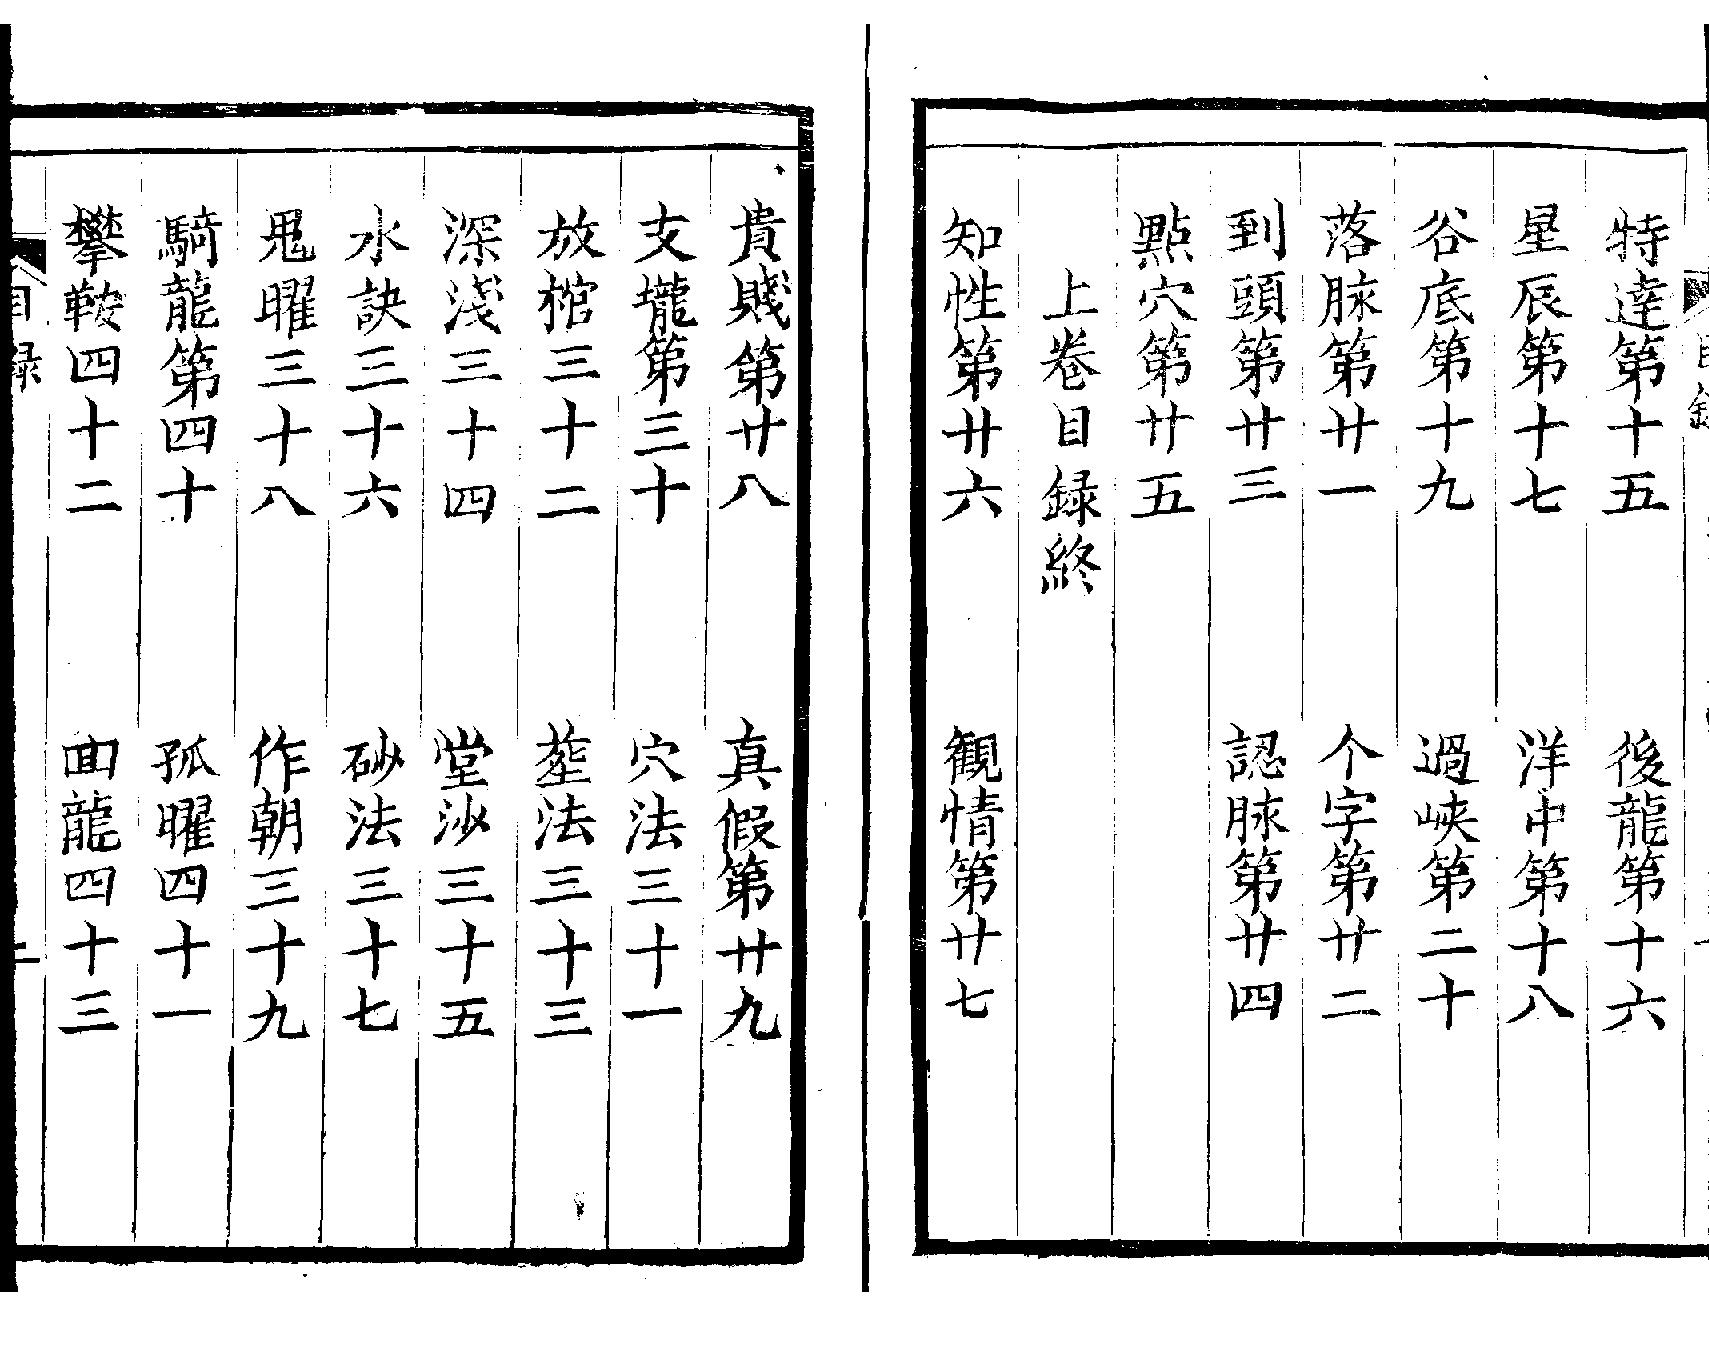 特達第十五　後龍第十六
星辰第十七　洋中第十八
谷底第十九　過峽第二十
落脉第廿一　个字第廿二
到頭第廿三　認脉第廿四
點穴第廿五
上卷目録終
知性第廿六　観情第廿七
貴賤第廿八　真假第廿九
支壠第三十　穴法三十一
放棺三十二　葬法三十三
深淺三十四　堂沙三十五
水訣三十六　砂法三十七
鬼曜三十八　作朝三十九
騎龍第四十　孤曜四十一
攀鞍四十二　回龍四十三
目録